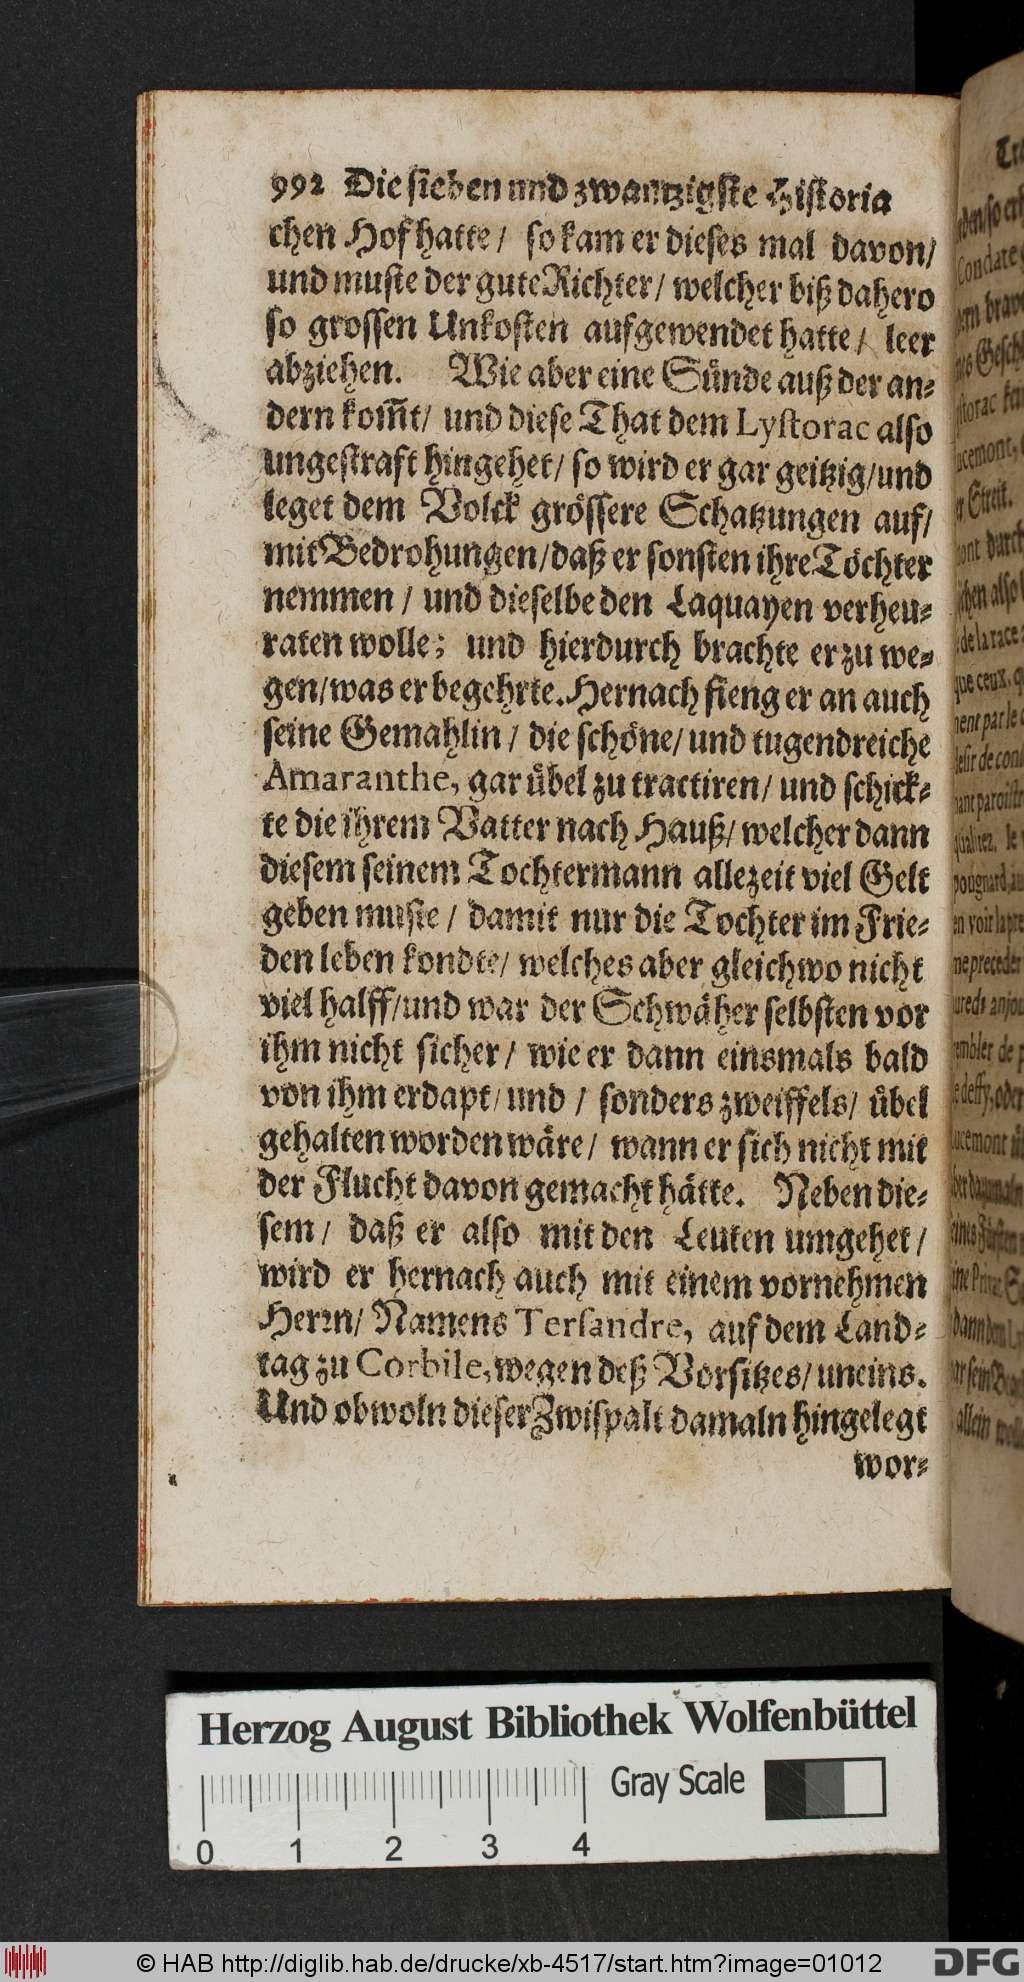 992 Die sieben und zwantzigste Historia
chen Hof hatte / so kam er dieses mal davon/
und muste der gute Richter/ welcher biß dahero
so grossen Unkosten aufgewendet hatte / leer
abziehen. Wie aber eine Sünde auß der an-
dern kom̅t/ und diese That dem Lystorac also
ungestraft hingehet/ so wird er gar geitzig/und
leget dem Volck grössere Schatzungen auf/
mit Bedrohungen/daß er sonsten ihre Töchter
nemmen / und dieselbe den Laquayen verheu-
raten wolle; und hierdurch brachte er zu we-
gen/was er begehrte. Hernach fieng er an auch
seine Gemahlin / die schöne/ und tugendreiche
Amaranthe, gar übel zu tractiren/ und schick-
te die ihrem Vatter nach Hauß/ welcher dann
diesem seinem Tochtermann allezeit viel Gelt
geben muste / damit nur die Tochter im Frie-
den leben kondte/ welches aber gleichwo nicht
viel halff/und war der Schwäher selbsten vor
ihm nicht sicher/ wie er dann einsmals bald
von ihm erdapt/ und / sonders zweiffels/ übel
gehalten worden wäre/ wann er sich nicht mit
der Flucht davon gemacht hätte. Neben die-
sem/ daß er also mit den Leuten umgehet/
wird er hernach auch mit einem vornehmen
Herrn/ Namens Tersandre, auf dem Land-
tag zu Corbile, wegen deß Vorsitzes/ uneins.
Und obwoln dieser Zwispalt damaln hingelegt
wor-
Herzog August Bibliothek Wolfenbüttel
Gray Scale
0 1 2 3 4
© HAB http://diglib.hab.de/drucke/xb-4517/start.htm?image=01012
DFG